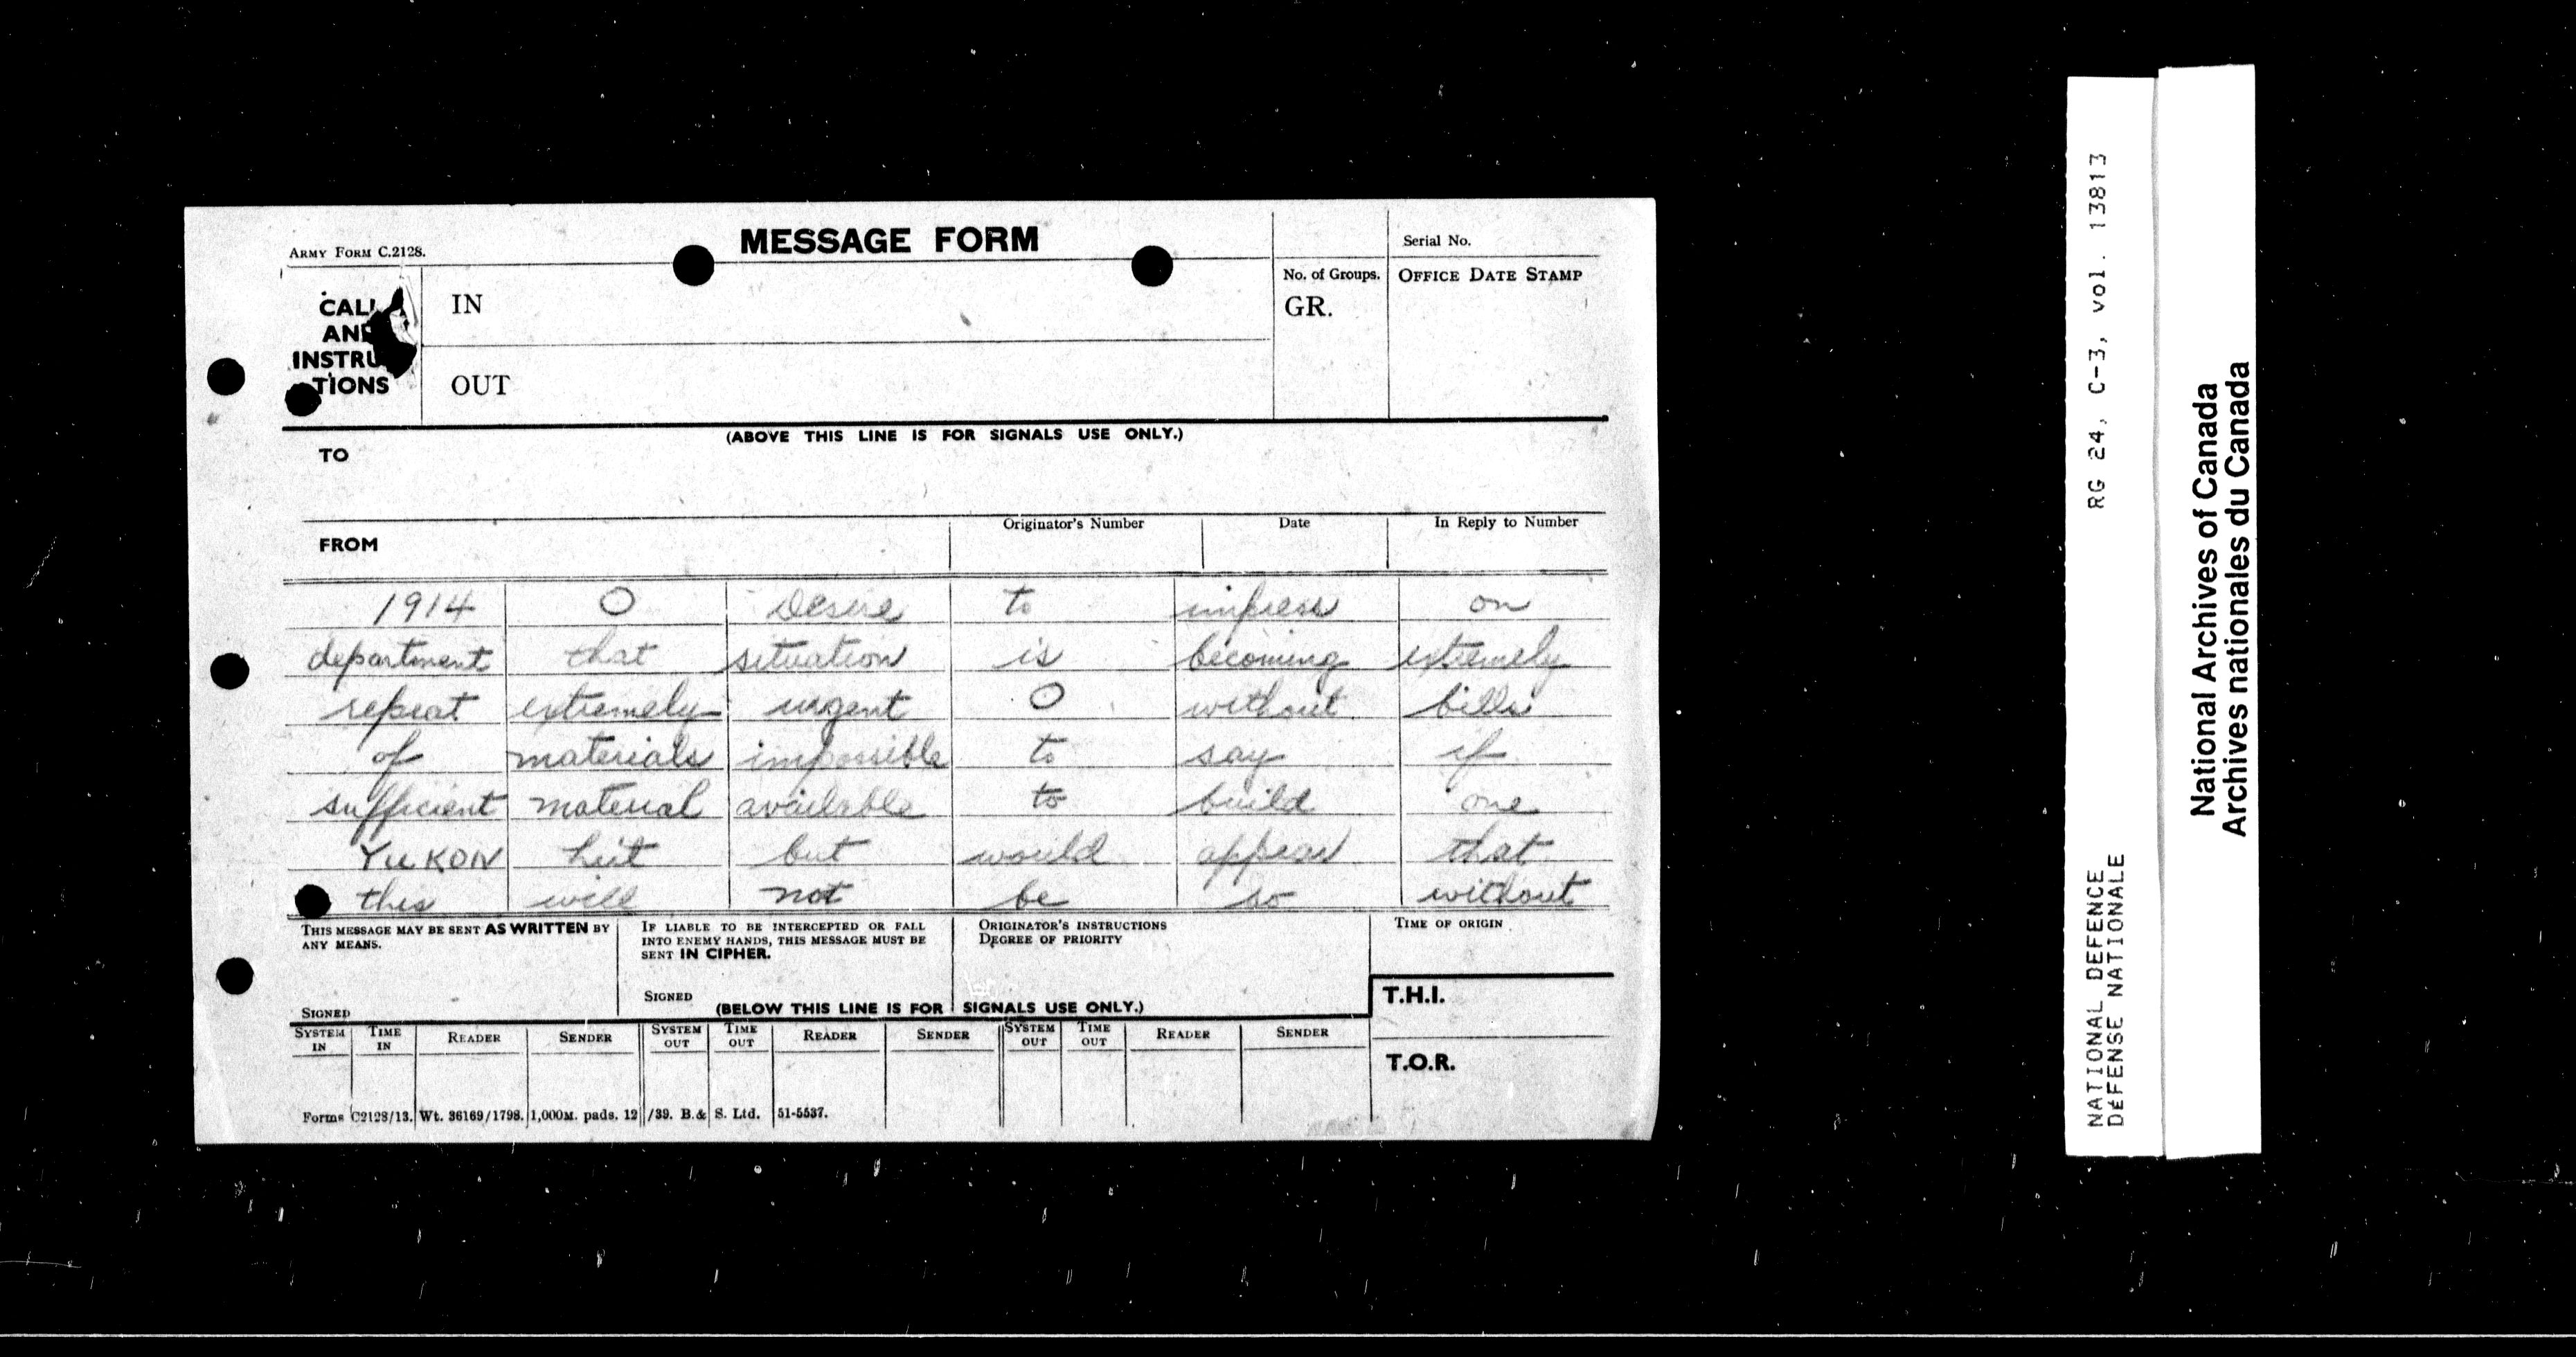 MESSAGE FORM
ARMY FORM C.2128.
Serial No.
No. of Groups.
OFFICE DATE STAMP
CALL
AND
INSTRU
TIONS
IN
GR.
OUT
(ABOVE THIS LINE IS FOR SIGNALS USE ONLY.)
TO
FROM
Originator's Number
Date
In Reply to Number
1914 O Desire to impress on
department that situation is becoming extremely
repeat extremely urgent O without bills
of materials impossible to say if
sufficient material available to build one
YUKON hut but would appear that
this will not be so without
THIS MESSAGE MAY BE SENT AS WRITTEN BY
ANY MEANS.
SIGNED
IF LIABLE TO BE INTERCEPTED OR FALL
INTO ENEMY HANDS, THIS MESSAGE MUST BE
SENT IN CIPHER.
SIGNED
ORIGINATOR'S INSTRUCTIONS
DEGREE OF PRIORITY
TIME OF ORIGIN
(BELOW THIS LINE IS FOR SIGNALS USE ONLY.)
T.H.I.
SYSTEM IN TIME IN READER SENDER SYSTEM OUT TIME OUT READER SENDER SYSTEM OUT TIME OUT READER SENDER
T.O.R.
Forms C2128/13. Wt. 36169/1798. 1,000M. pads. 12/39. B.& S. Ltd. 51-5537.
NATIONAL DEFENCE RG 24, C-3, vol. 13813
DEFENSE NATIONALE
National Archives of Canada
Archives nationales du Canada